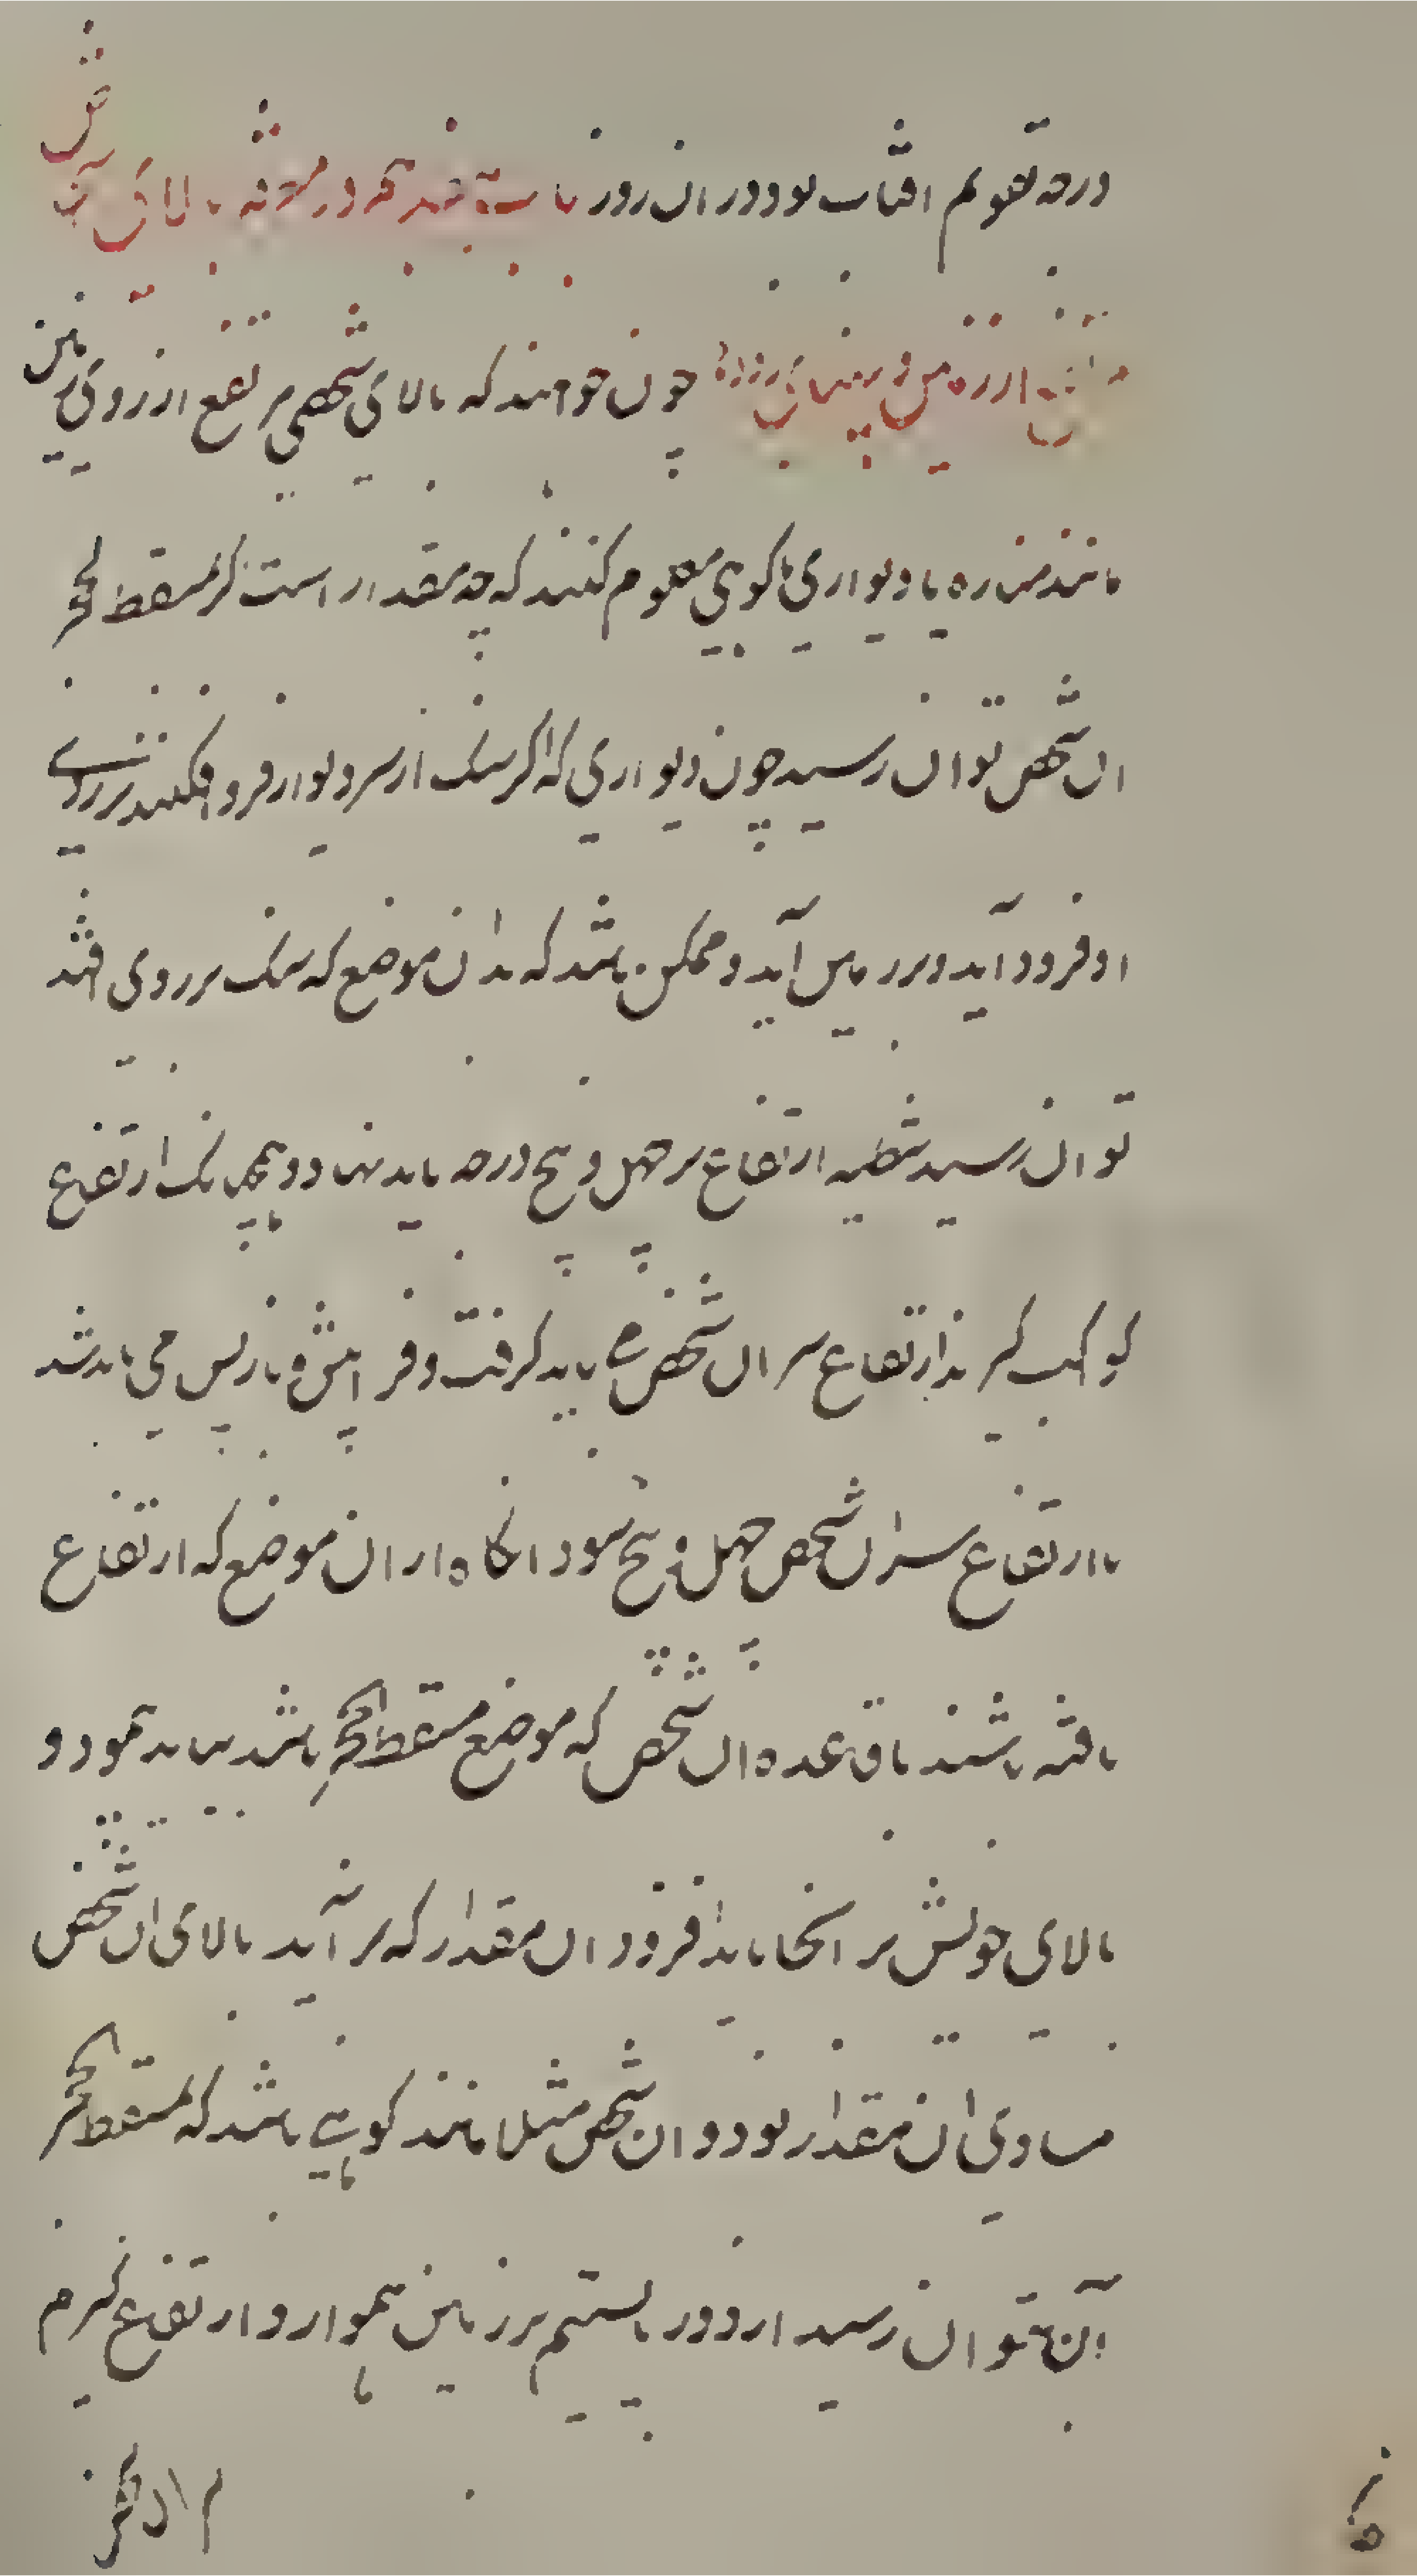 درجه تقویم افتاب بود در ان روز باب بیستم در معرفة بالای شخص
مرتفع از زمین و پهنای رودها چون خواهند که بالای شخصی مرتفع از روی زمین
مانند مناره یا دیواری یا کوهی معلوم کنند که چه مقدار است اگر بمسقط الحجر
ان شخص توان رسید چون دیواری که اگر سنک از سر دیوار فرو افکنند بر روی
او فرود آید و بر زمین آید و ممکن باشد که بدان موضع که سنک بر وی افتد
توان رسید شظیه ارتفاع بر چهل و پنج درجه باید نهاد و همچنانک ارتفاع
کواکب کیرند ارتفاع سر ان شخص می باید کرفت و فراپیش و بازپس می باید شد
تا ارتفاع سر ان شخص چهل و پنج شود انکاه از ان موضع که ارتفاع
یافته باشند تا قاعده ان شخص که موضع مسقط الحجر باشد بباید پیمود و
بالای خویش بر انجا باید افزود ان مقدار که بر آید بالای ان شخص
مساوی ان مقدار بود و ان شخص مثلا مانند کوهی باشد که بمسقط الحجر
آن نتوان رسید از دور بایستیم بر زمین هموار و ارتفاع کیریم